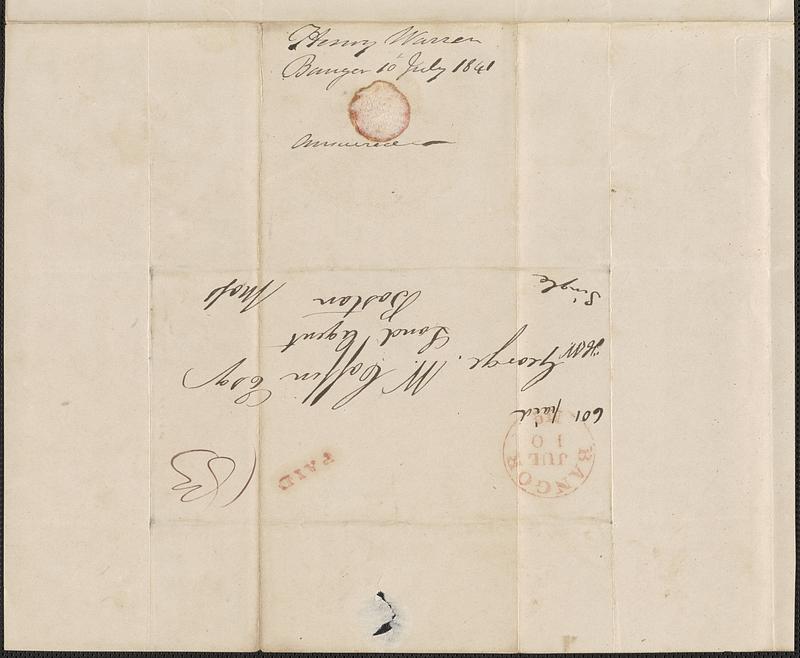 Henry Warren
Bangor 10 July 1841
Answered
601 paid
George. W Coffin Esq
Land Agent
Boston
Mass
Single
BANGOR
JUL
10
Me
PAID